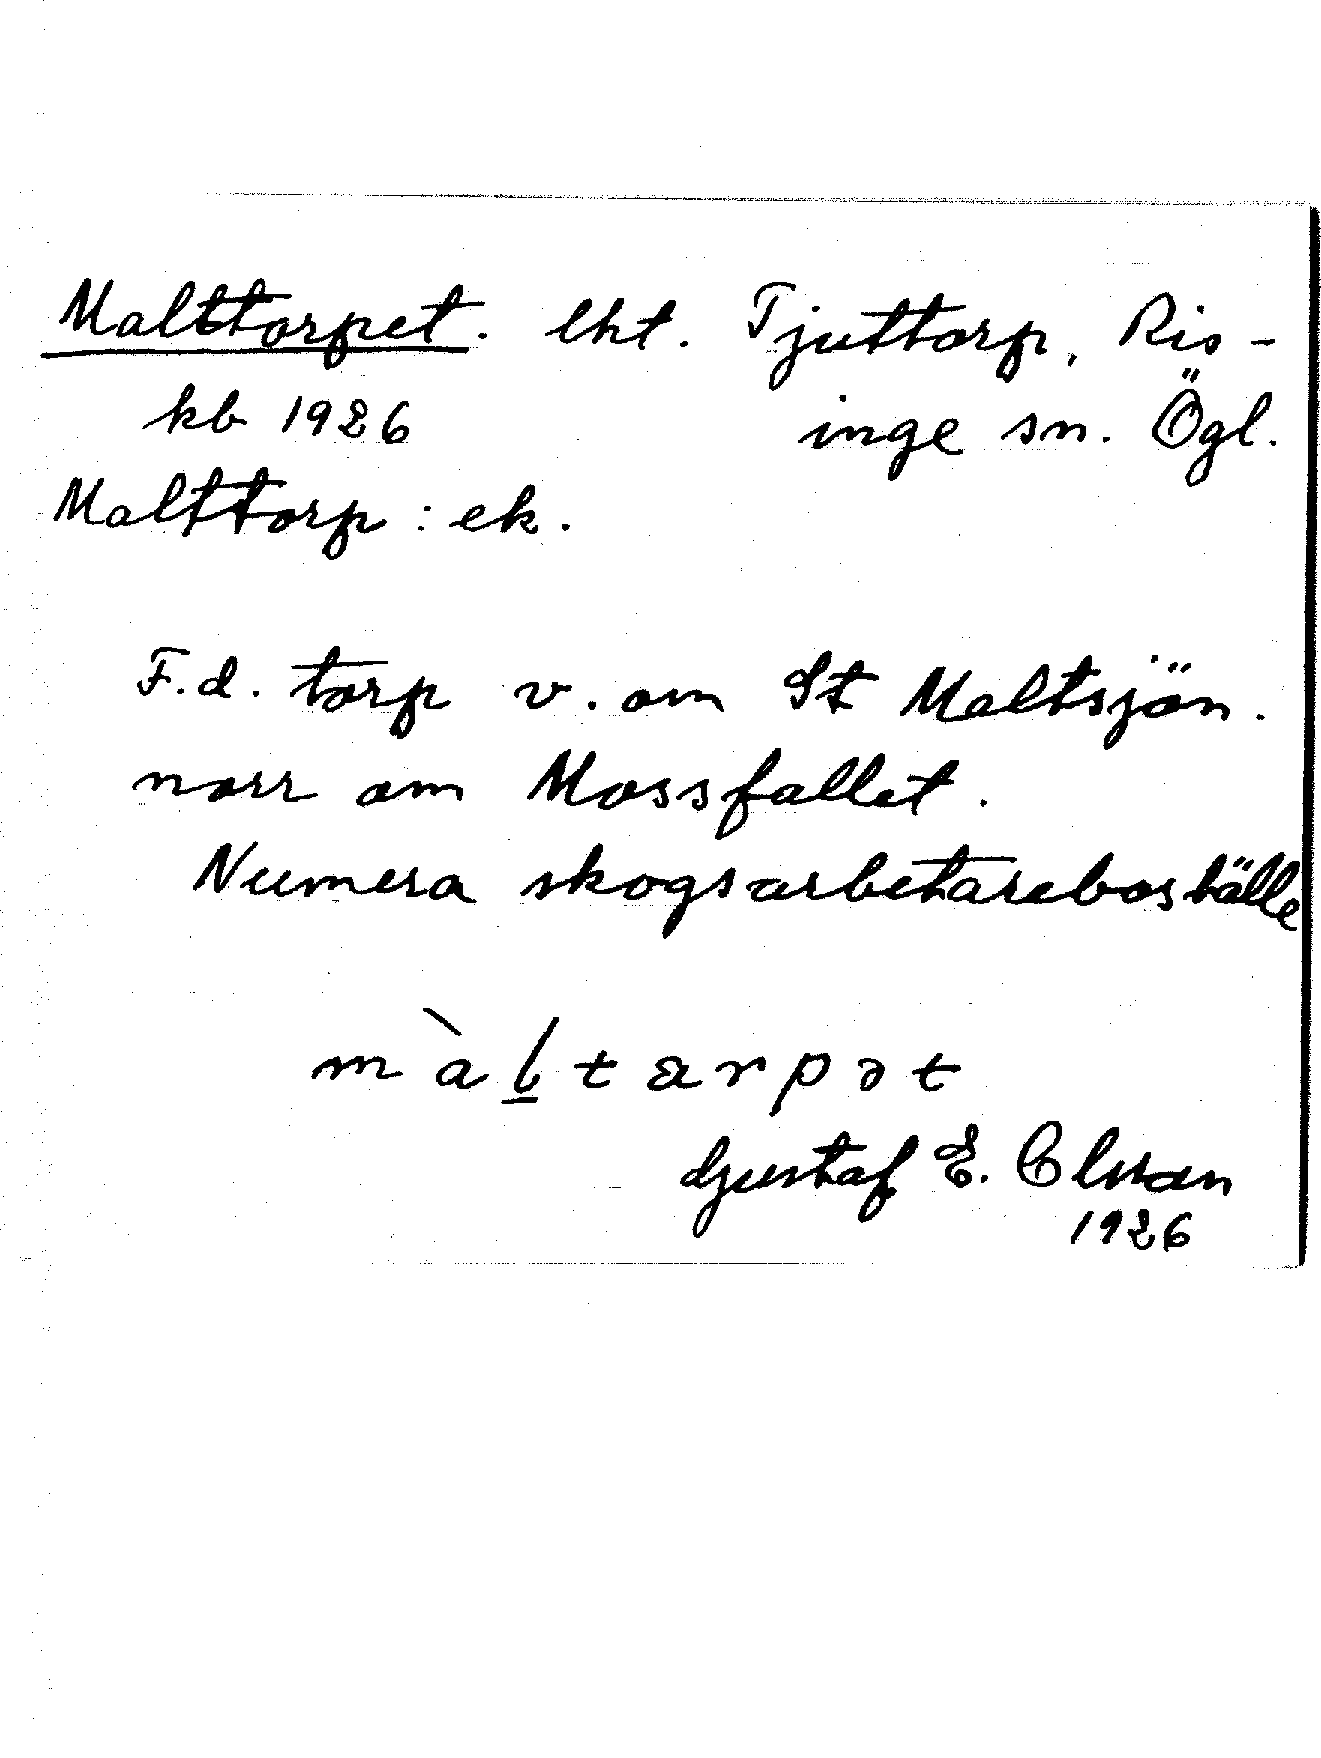 Malttorpet. lht. Tjuttorp, Ris-
kb 1926 inge sn. Ögl.
Malttorp: ek.
F.d. torp v. om St Maltsjön.
norr om Mossfallet.
Numera skogsarbetareboställe
màl̲tarpət
Gustaf E. Olsson
1926